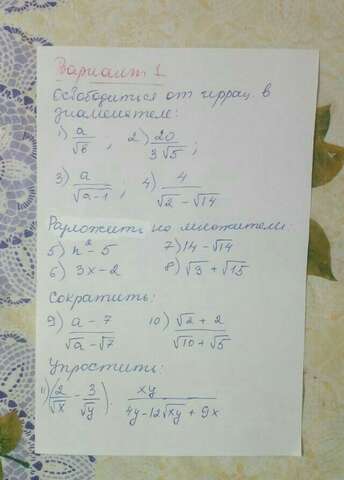 Вариант 1
Освободиться от иррац. в
знаменателе:
1) a/√b ; 2) 20/3√5 ;
3) a/√a-1 ; 4) 4/√2 - √14
Разложить на множители
5) n² - 5 7) 14 - √14
6) 3x - 2 8) √3 + √15
Сократить:
9) a - 7/√a - √7 10) √2 + 2/√10 + √5
Упростить:
11) (2/√x - 3/√y) · xy/4y - 12√xy + 9x